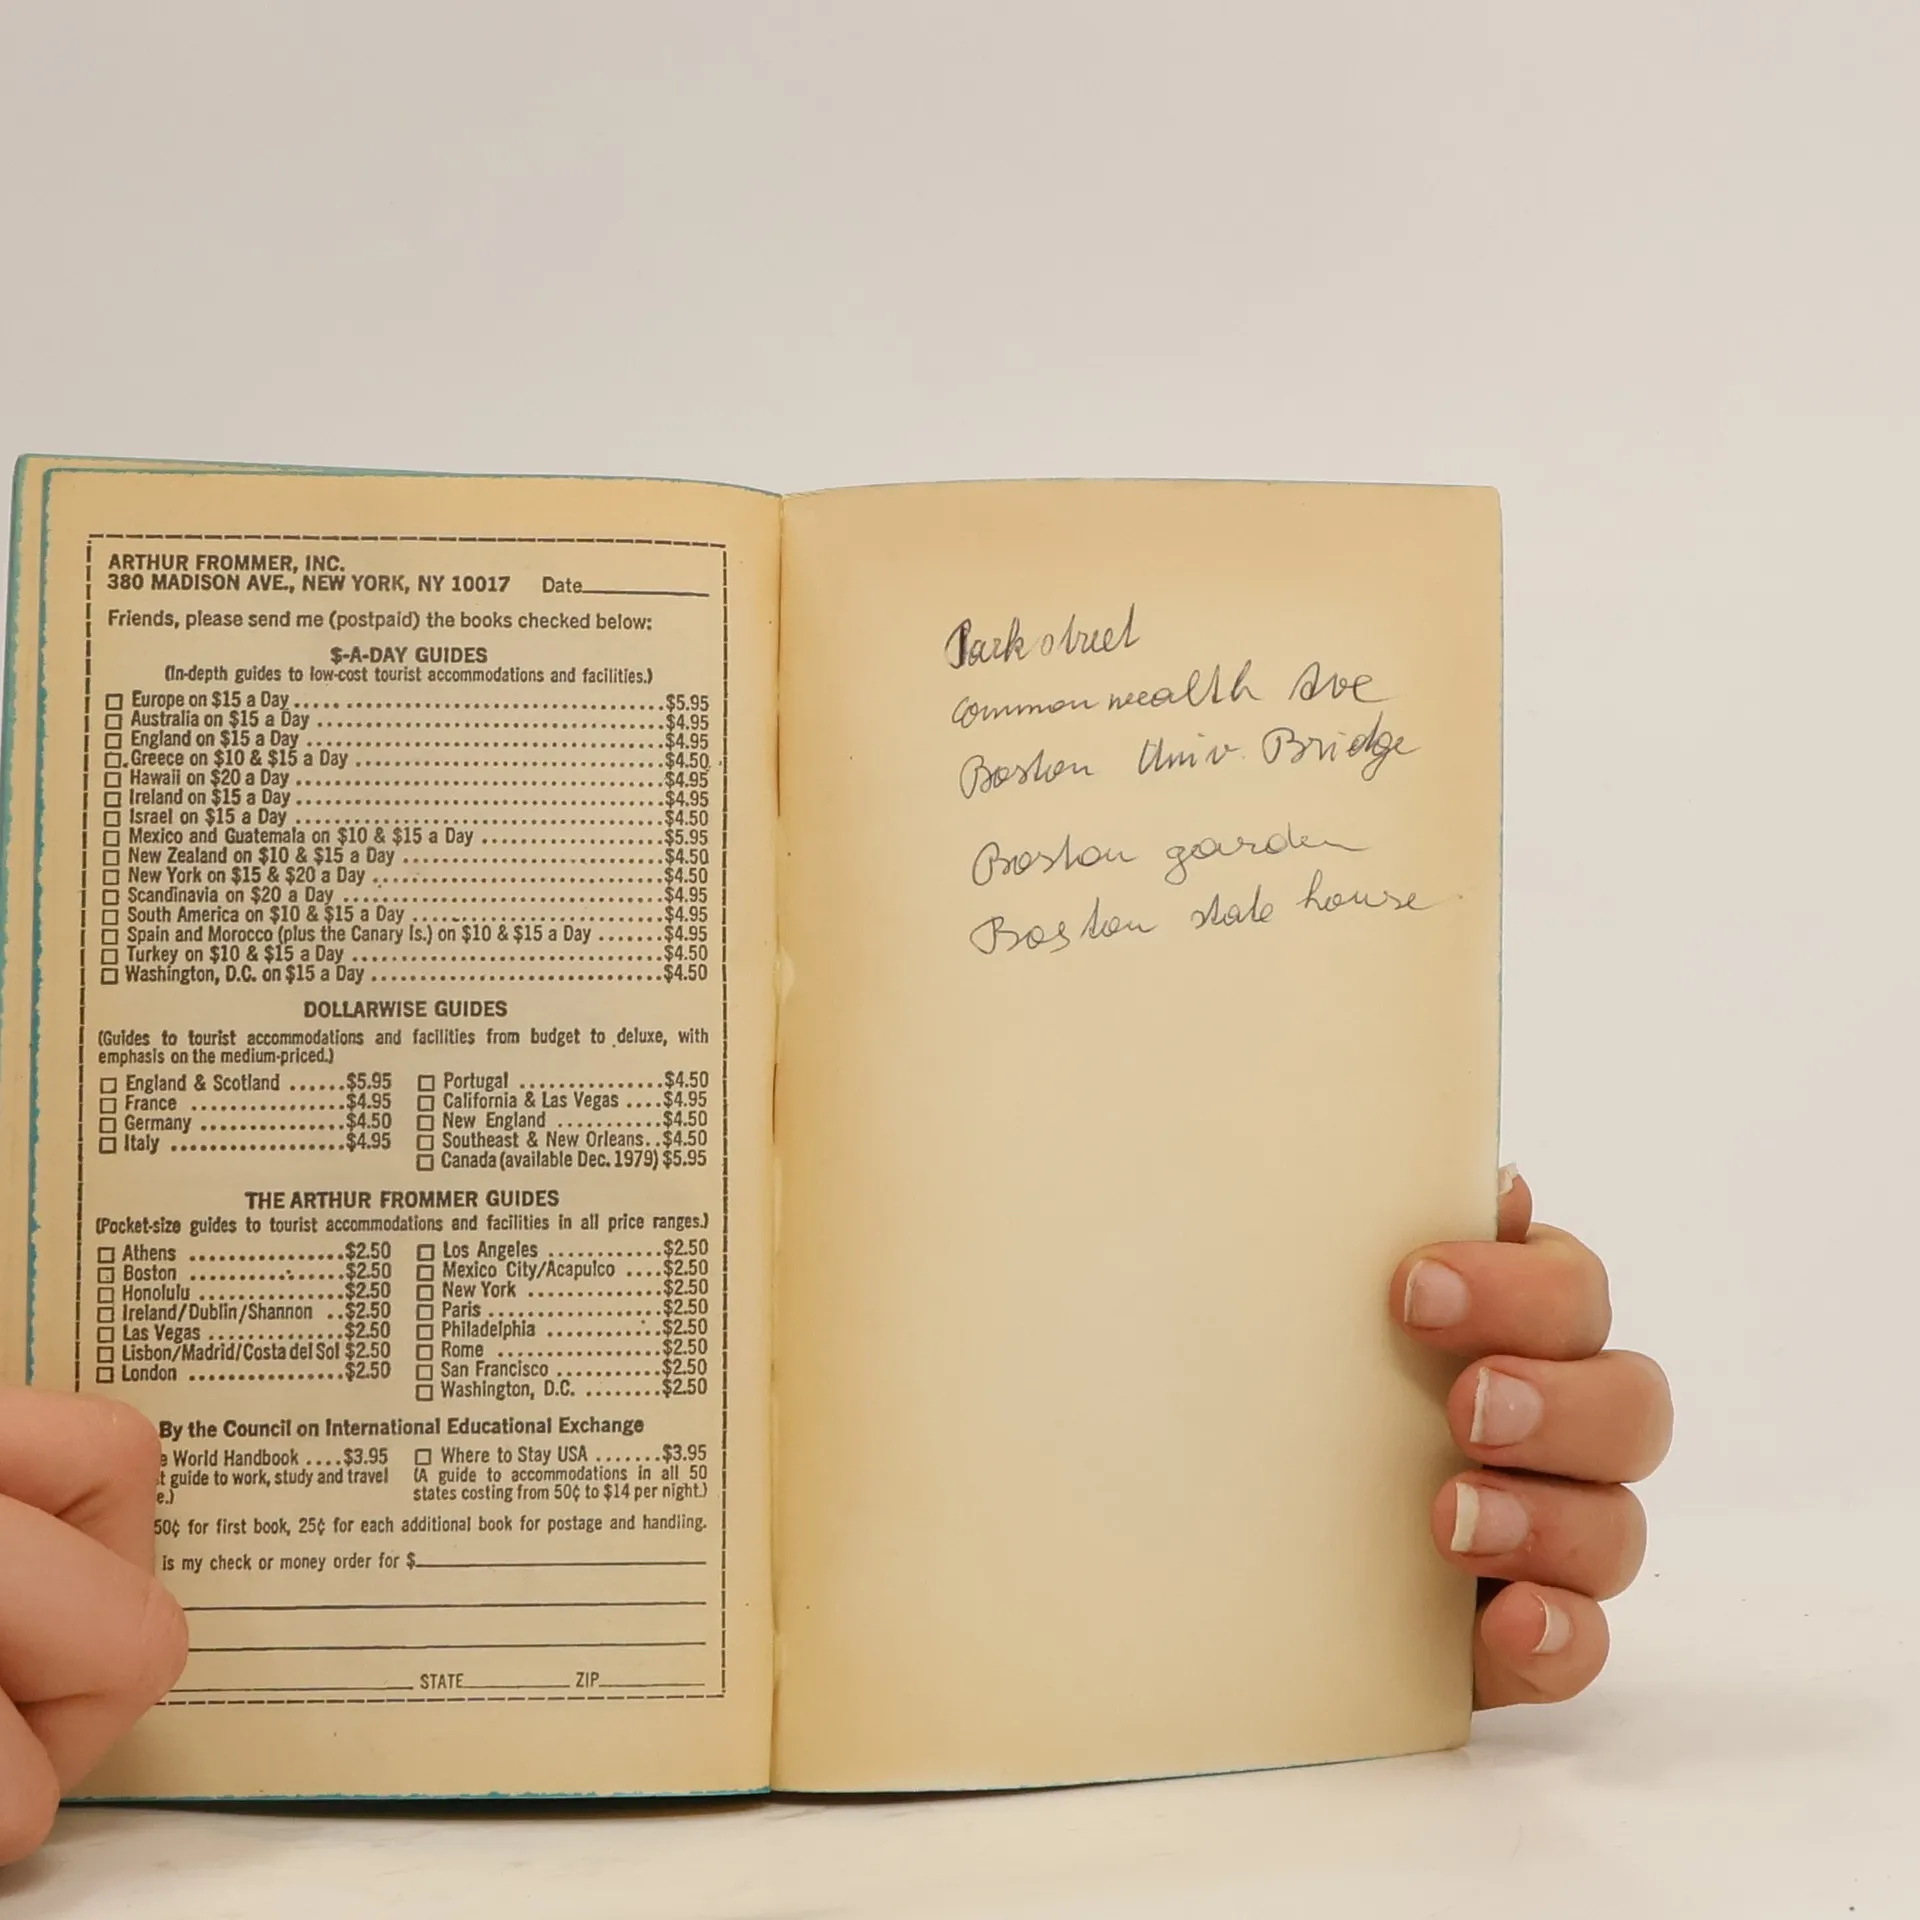 ARTHUR FROMMER, INC.
380 MADISON AVE., NEW YORK, NY 10017 Date
Friends, please send me (postpaid) the books checked below:
$-A-DAY GUIDES
(In-depth guides to low-cost tourist accommodations and facilities.)
Europe on $15 a Day $5.95
Australia on $15 a Day $4.95
England on $15 a Day $4.95
Greece on $10 & $15 a Day $4.50
Hawaii on $20 a Day $4.95
Ireland on $15 a Day $4.95
Israel on $15 a Day $4.50
Mexico and Guatemala on $10 & $15 a Day $5.95
New Zealand on $10 & $15 a Day $4.50
New York on $15 & $20 a Day $4.50
Scandinavia on $20 a Day $4.95
South America on $10 & $15 a Day $4.95
Spain and Morocco (plus the Canary Is.) on $10 & $15 a Day $4.95
Turkey on $10 & $15 a Day $4.50
Washington, D.C. on $15 a Day $4.50
DOLLARWISE GUIDES
(Guides to tourist accommodations and facilities from budget to deluxe, with
emphasis on the medium-priced.)
England & Scotland $5.95
France $4.95
Germany $4.50
Italy $4.95
Portugal $4.50
California & Las Vegas $4.95
New England $4.50
Southeast & New Orleans $4.50
Canada (available Dec. 1979) $5.95
THE ARTHUR FROMMER GUIDES
(Pocket-size guides to tourist accommodations and facilities in all price ranges.)
Athens $2.50
Boston $2.50
Honolulu $2.50
Ireland/Dublin/Shannon $2.50
Las Vegas $2.50
Lisbon/Madrid/Costa del Sol $2.50
London $2.50
Los Angeles $2.50
Mexico City/Acapulco $2.50
New York $2.50
Paris $2.50
Philadelphia $2.50
Rome $2.50
San Francisco $2.50
Washington, D.C. $2.50
By the Council on International Educational Exchange
World Handbook $3.95
guide to work, study and travel
Where to Stay USA $3.95
(A guide to accommodations in all 50
states costing from 50¢ to $14 per night.)
50¢ for first book, 25¢ for each additional book for postage and handling.
is my check or money order for $
STATE ZIP
Park street
Commonwealth Ave
Boston Univ. Bridge
Boston garden
Boston state house